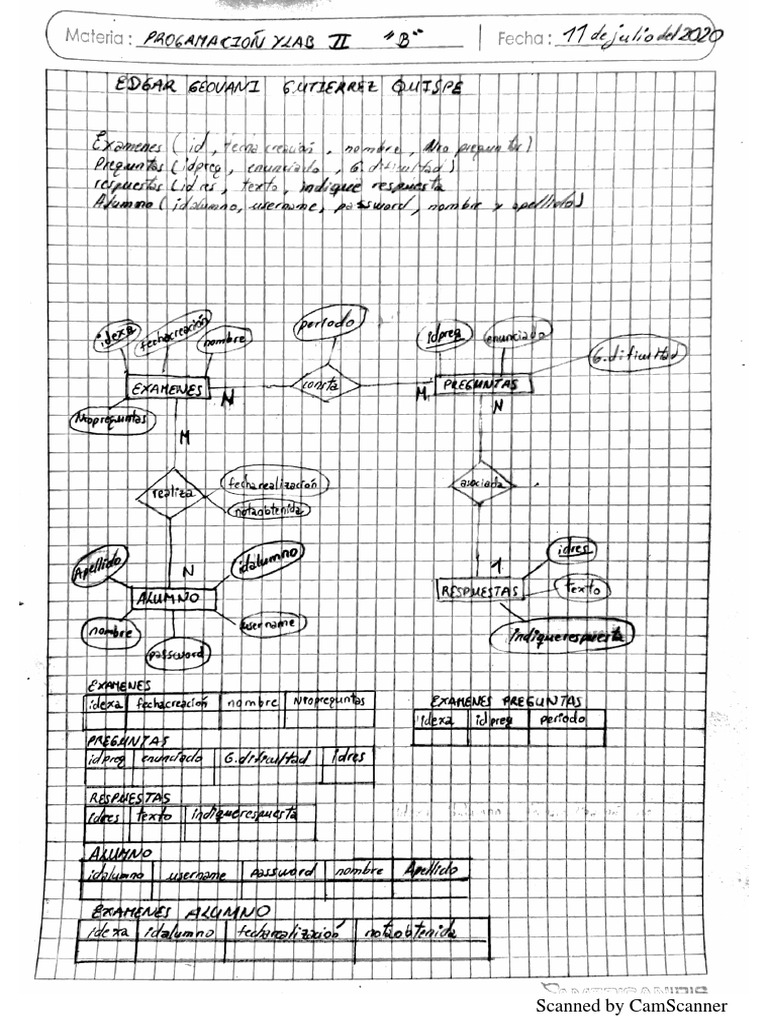 Materia: PROGAMACIÓN Y LAB II "B" Fecha: 11 de julio del 2020
EDGAR GEOVANI GUTIERREZ QUISPE
Examenes (id, fechacreación, nombre, Nro preguntas)
Preguntas (idpreg, enunciado, G.dificultad)
respuestas (idres, texto, indique respuesta
Alumno (idalumno, username, password, nombre y apellido)
idexa fechacreación nombre periodo idpreg enunciado G.dificultad
EXAMENES N consta M PREGUNTAS
Nropreguntas
M N
realiza fecharealización notaobtenida asociada
Apellido idalumno N 1 idres
ALUMNO RESPUESTAS texto
nombre username indiquerespuesta
password
EXAMENES
idexa fechacreación nombre Nropreguntas
EXAMENES PREGUNTAS
idexa idpreg periodo
PREGUNTAS
idpreg enunciado G.dificultad idres
RESPUESTAS
idres texto indiquerespuesta
ALUMNO
idalumno username password nombre Apellido
EXAMENES ALUMNO
idexa idalumno fecharealización notaobtenida
Scanned by CamScanner